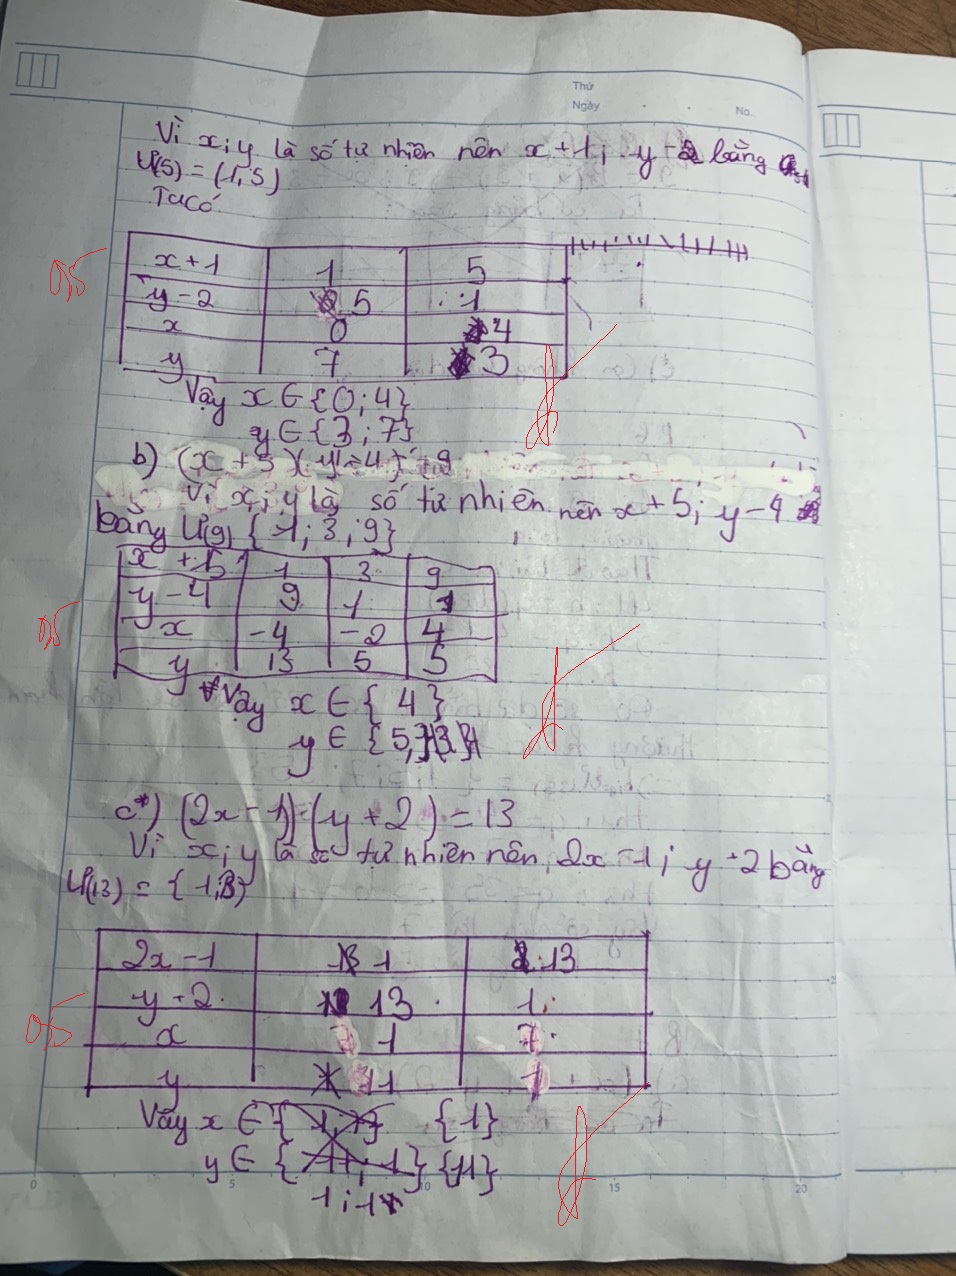 Thứ
Ngày
No.
Vì x; y là số tự nhiên nên x+1; y-2 bằng
Ư(5) = (1, 5)
Ta có
0,5
x+1 1 5
y-2 5 1
x 0 4
y 7 3
Vậy x ∈ {0; 4}
y ∈ {3; 7}
b) (x+5)(y-4) = 9
Vì x, y là số tự nhiên nên x+5; y-4
bằng Ư(9) {1; 3; 9}
x+5 1 3 9
y-4 9 1 1
0,5
x -4 -2 4
y 13 5 5
Vậy x ∈ { 4 }
y ∈ { 5,
c*) (2x-1)(y+2) = 13
Vì x; y là số tự nhiên nên 2x-1; y+2 bằng
Ư(13) = {1, 13}
2x-1 1 13
y+2 13 1
0,5
x 1 7
y 11
Vậy x ∈ {1}
y ∈ {11}
0 5 10 15 20